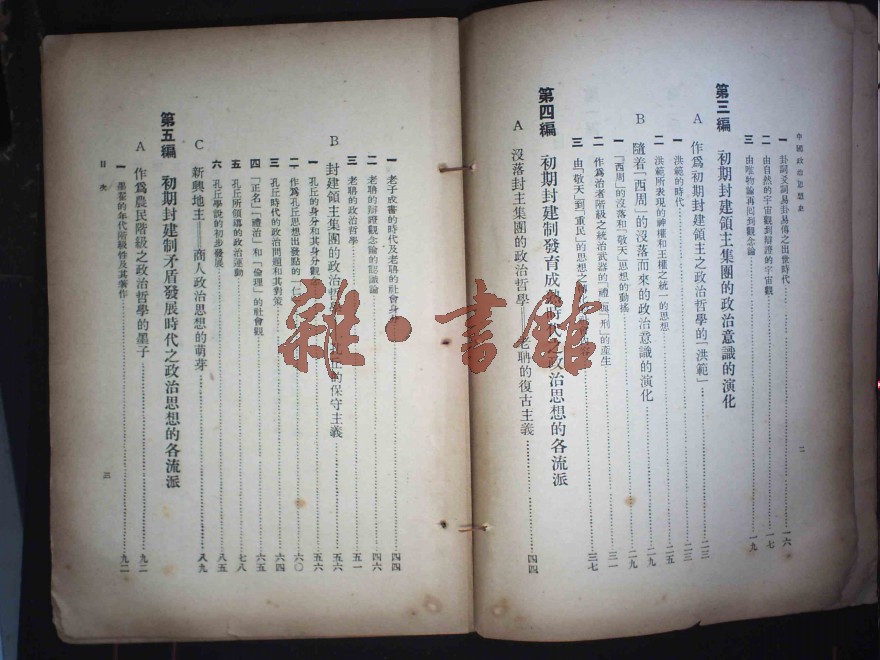 中國政治思想史
一 卦詞爻詞易傳之出世時代……一六
二 由自然的宇宙觀到辯證的宇宙觀……一七
三 由唯物論再回到觀念論……一九
第三編 初期封建領主集團的政治意識的演化
A 作爲初期封建領主之政治哲學的「洪範」……二三
一 洪範的時代……二三
二 洪範所表現的神權和王權之統一的思想……二五
B 隨着「西周」的沒落而來的政治意識的演化……二九
一 「西周」的沒落和「敬天」思想的動搖……二九
二 作爲治者階級之統治武器的「禮」與「刑」的產生……三一
三 由「敬天」到「重民」的思想之……三七
第四編 初期封建制發育成熟時代之政治思想的各流派
A 沒落封主集團的政治哲學——老聃的復古主義……四四
二
一 老子成書的時代及老聃的社會身……四四
二 老聃的辯證觀念論的認識論……四六
三 老聃的政治哲學……五一
B 封建領主集團的政治哲學——孔丘的保守主義……五六
一 孔丘的身分和其身分觀……五六
二 作爲孔丘思想出發點的「仁」……六〇
三 孔丘時代的政治問題和其對策……六四
四 「正名」「禮治」和「倫理」的社會觀……六五
五 孔丘所領導的政治運動……七八
六 孔丘學說的初步發展……八五
C 新興地主——商人政治思想的萌芽……八九
第五編 初期封建制矛盾發展時代之政治思想的各流派
A 作爲農民階級之政治哲學的墨子……九二
一 墨翟的年代階級性及其著作……九二
目次
三
雜·書館